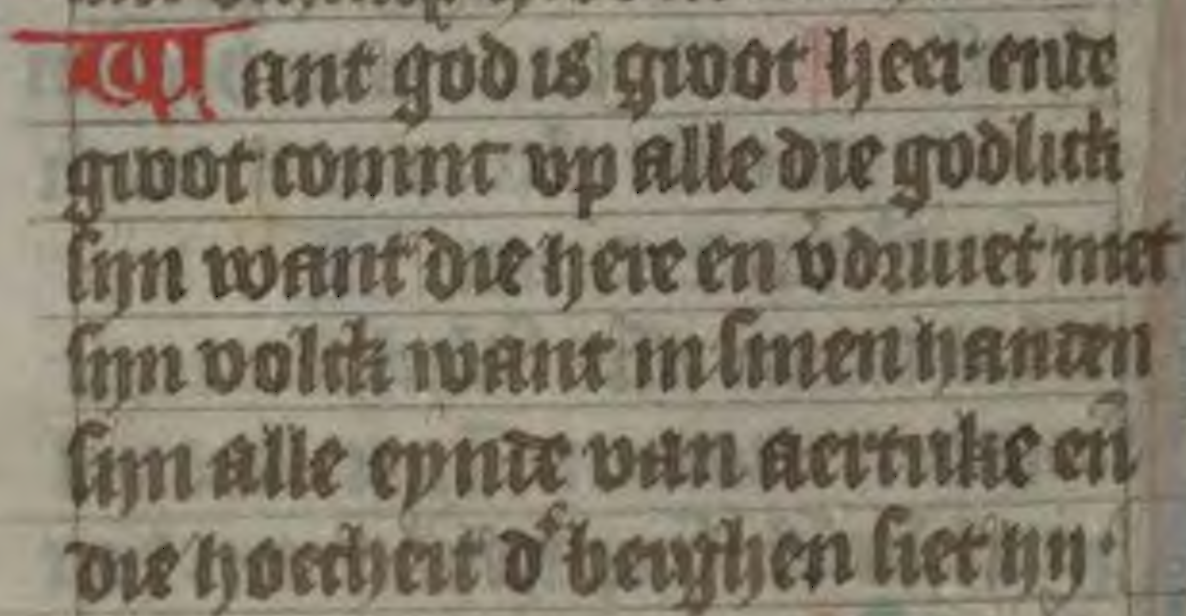 Want god is groot heer ende
groot coninc op alle die godlick
sijn want die here en vdriuet niet
sijn volck want in sinen handen
sijn alle eynde van aertrike en̄
die hoecheit d' berghen siet hij·